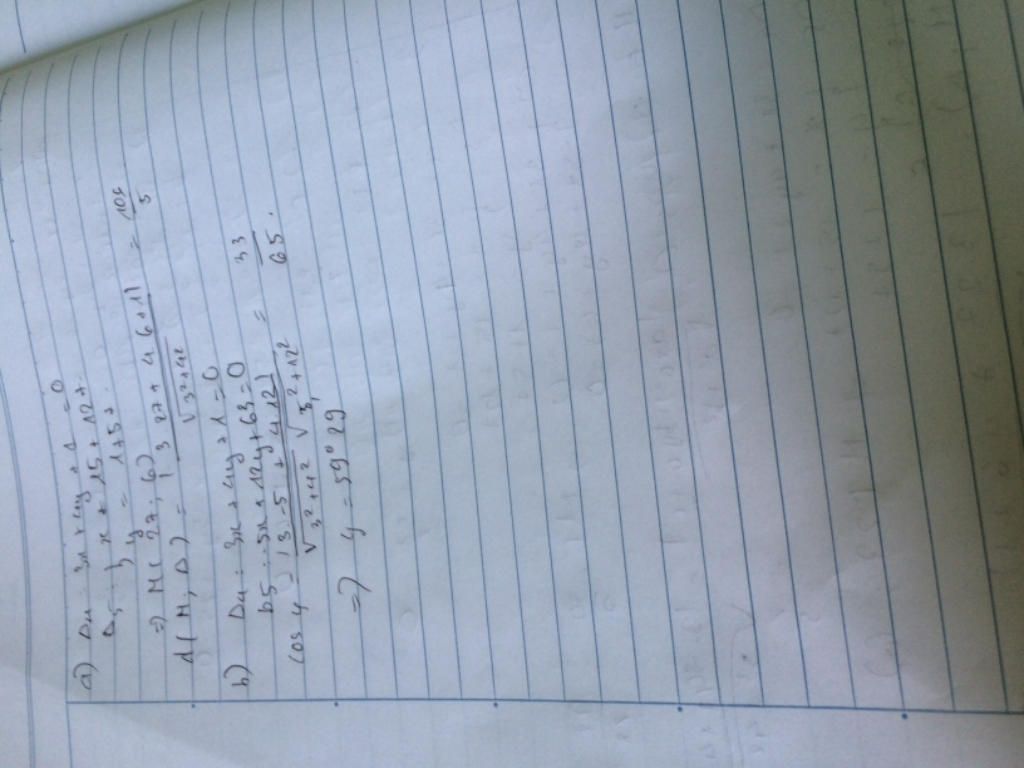 a) Δ4 : 3x + 4y + 1 = 0
Δ5 : { x = 15 + 12t
y = 1 + 5t
=> M ( 27 ; 6 )
d ( M , Δ ) = | 3 27 + 4 6 + 1 | / √3² + 4² = 106 / 5
b) Δ4 : 3x + 4y + 1 = 0
Δ5 : -5x + 12y + 63 = 0
cos φ | 3 . -5 + 4 12 | / √3² + 4² √5² + 12² = 33 / 65 .
=> φ = 59° 29